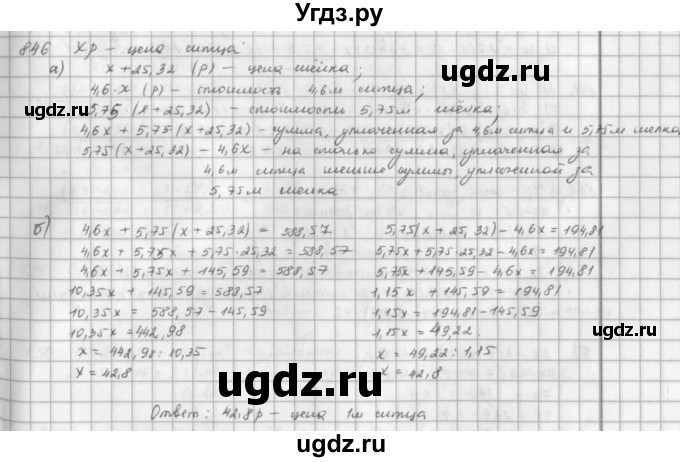 Угдз.ру
846 Xр – цена ситца
а) x + 25,32 (р) – цена шёлка;
4,6·x (р) – стоимость 4,6м ситца;
5,75·(x + 25,32) – стоимость 5,75м шёлка;
4,6x + 5,75(x + 25,32) – сумма, уплаченная за 4,6м ситца и 5,75м шелка
5,75(x + 25,32) – 4,6x – на столько сумма, уплаченная за
4,6м ситца меньше суммы, уплаченной за
5,75м шелка
б) 4,6x + 5,75(x + 25,32) = 588,57
4,6x + 5,75x + 5,75·25,32 = 588,57
4,6x + 5,75x + 145,59 = 588,57
10,35x + 145,59 = 588,57
10,35x = 588,57 – 145,59
10,35x = 442,98
x = 442,98 : 10,35
x = 42,8
5,75(x + 25,32) – 4,6x = 194,81
5,75x + 5,75·25,32 – 4,6x = 194,81
5,75x + 145,59 – 4,6x = 194,81
1,15x + 145,59 = 194,81
1,15x = 194,81 – 145,59
1,15x = 49,22
x = 49,22 : 1,15
x = 42,8
ugdz.ru
ugdz.ru
ugdz.ru
Ответ: 42,8р – цена 1м ситца
ugdz.ru